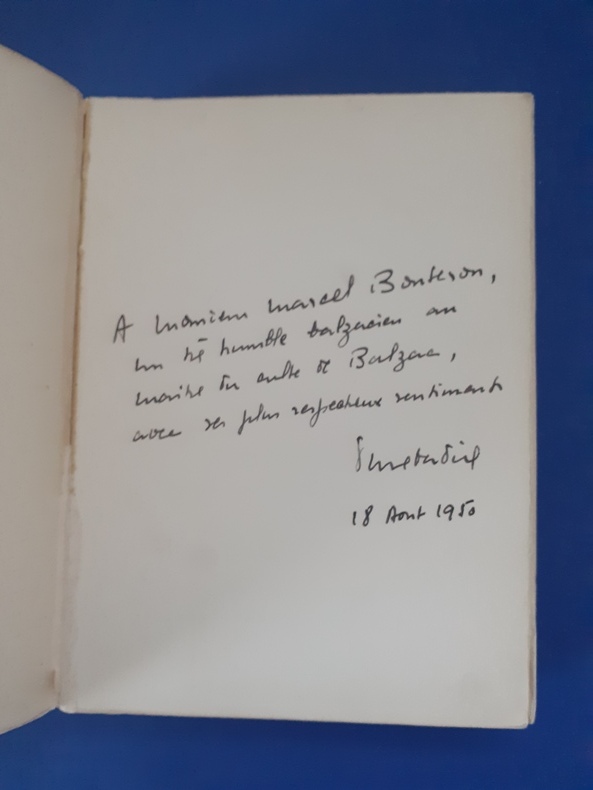 A Monsieur Marcel Bouteron,
un très humble balzacien au
maître du culte de Balzac,
avec ses plus respectueux sentiments
18 Août 1950